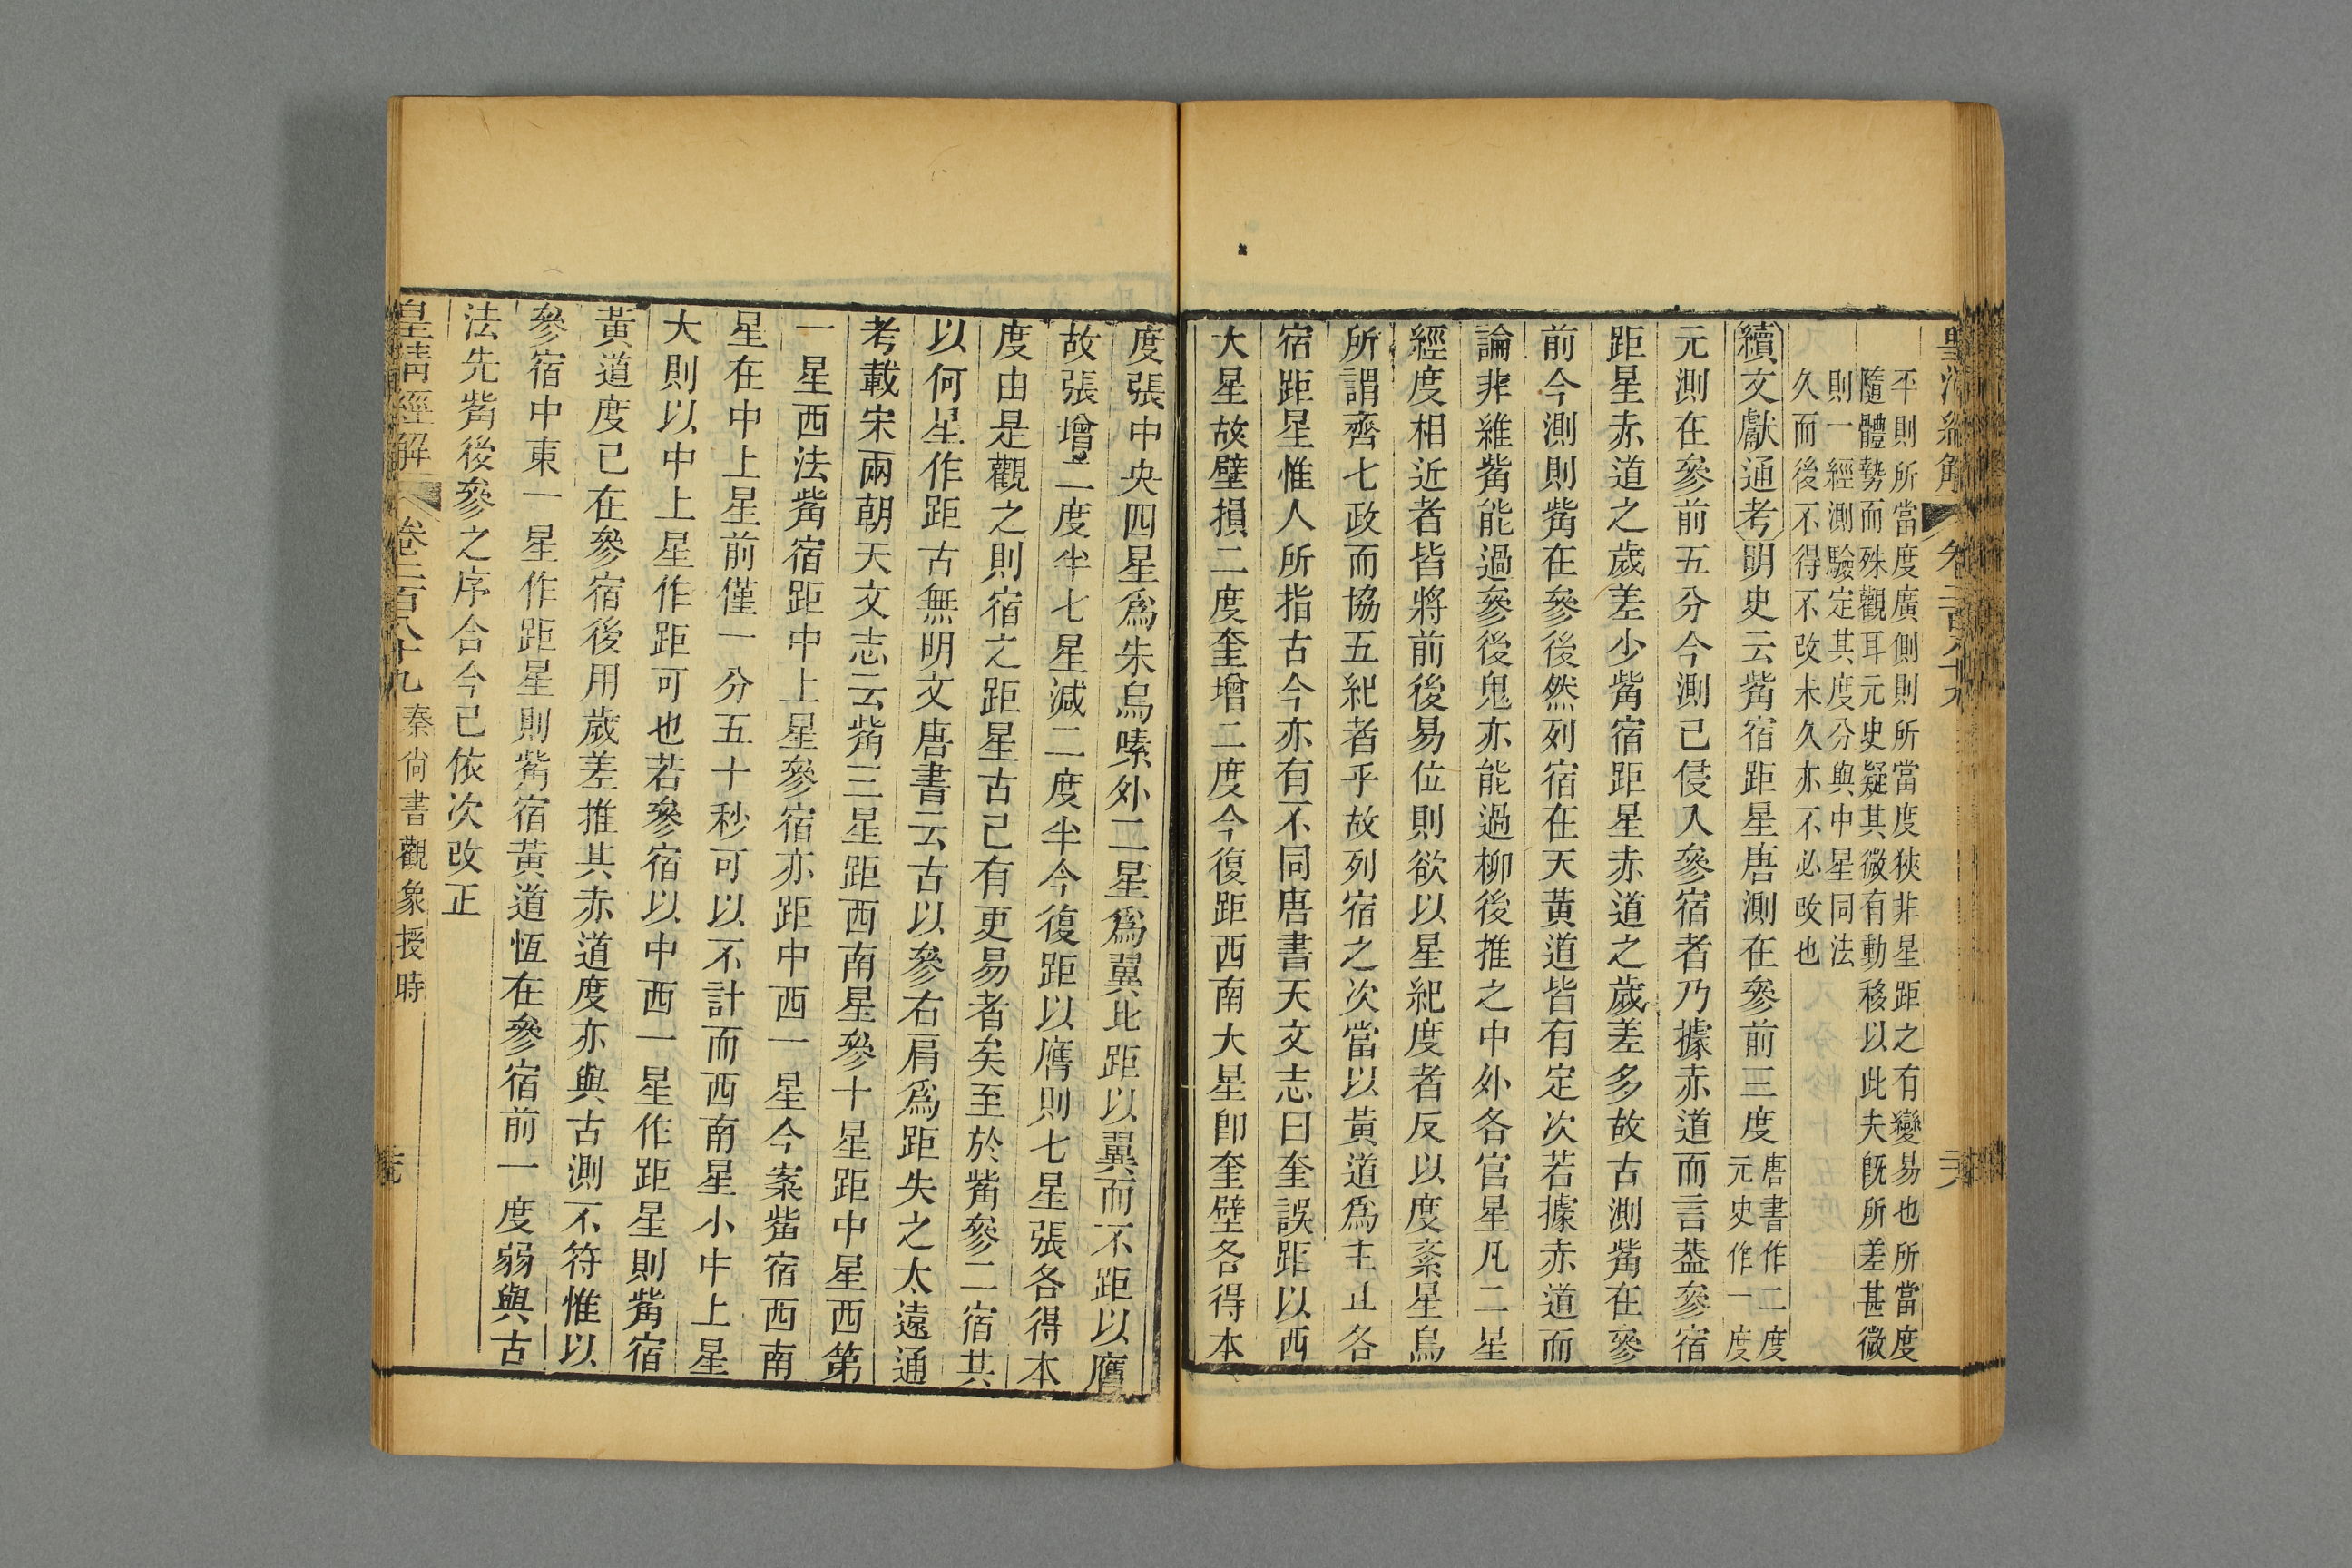 皇清經解 卷二百八十九 天
平則所當度廣側則所當度狹非星距之有變易也所當度
隨體勢而殊觀耳元史疑其微有動移以此夫旣所差甚微
則一經測驗定其度分與中星同法
久而後不得不改未久亦不必改也
續文獻通考明史云觜宿距星唐測在參前三度唐書作二度
元史作一度
元測在參前五分今測已侵入參宿者乃據赤道而言葢參宿
距星赤道之歲差少觜宿距星赤道之歲差多故古測觜在參
前今測則觜在參後然列宿在天黃道皆有定次若據赤道而
論非維觜能過參後鬼亦能過柳後推之中外各官星凡二星
經度相近者皆將前後易位則欲以星紀度者反以度紊星烏
所謂齊七政而協五紀者乎故列宿之次當以黃道爲主止各
宿距星惟人所指古今亦有不同唐書天文志曰奎誤距以西
大星故壁損二度奎增二度今復距西南大星卽奎壁各得本
度張中央四星爲朱鳥嗉外二星爲翼比距以翼而不距以膺
故張增二度半七星減二度半今復距以膺則七星張各得本
度由是觀之則宿之距星古已有更易者矣至於觜參二宿其
以何星作距古無明文唐書云古以參右肩爲距失之太遠通
考載宋兩朝天文志云觜三星距西南星參十星距中星西第
一星西法觜宿距中上星參宿亦距中西一星今案觜宿西南
星在中上星前僅一分五十秒可以不計而西南星小中上星
大則以中上星作距可也若參宿以中西一星作距星則觜宿
黃道度已在參宿後用歲差推其赤道度亦與古測不符惟以
參宿中東一星作距星則觜宿黃道恆在參宿前一度弱與古
法先觜後參之序合今已依次改正
皇淸經解 卷二百八十九 秦尚書觀象授時